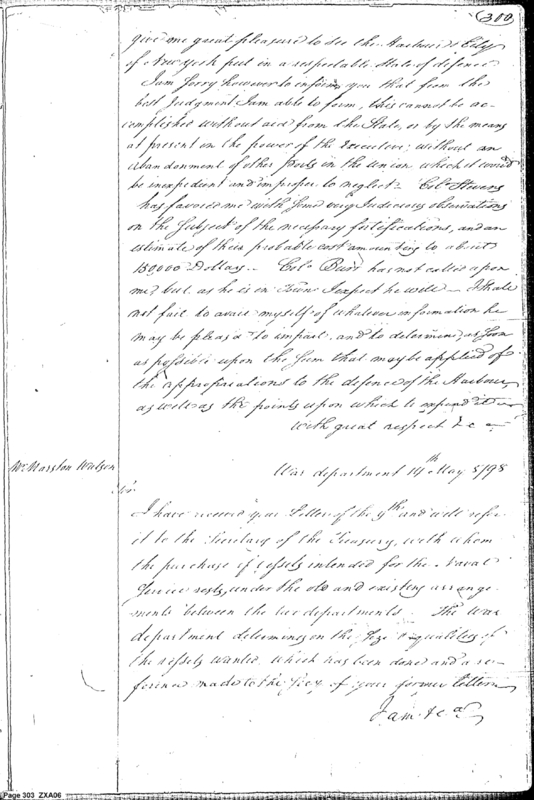 300
give me great pleasure to see the Harbour & City
of New york put in a respectable state of defence
I am sorry however to inform you that from the
best Judgment I am able to form, this cannot be ac-
complished without aid from the State, or by the means
at present in the power of the Executive, without an
abandonment of other posts in the union which it would
be inexpedient and improper to neglect. Col. Stevens
has favored me with some very Judicious observations
on the subject of the necessary fortifications, and an
estimate of their probable cost amounting to about
150,000 Dollars. Colo. Burr has not called upon
me, but as he is in Town I expect he will. I shall
not fail to avail myself of whatever information he
may be pleased to impart and to determine as soon
as possible upon the sum that may be applied of
the appropriations to the defence of the Harbour,
as well as the points upon which to expend it
With great respect &c
Mr. Marston Watson
War department 14th May 1798
Sir
I have received your Letter of the 9th and will refer
it to the Secretary of the Treasury, with whom
the purchase of vessels intended for the Naval
Service rests, under the old and existing arrange-
ments between the two departments. The War
department determines on the size & qualities of
the vessels wanted, which has been done and a re-
ference made to the Secy of your former letter
I am &ca
Page 303 ZXA06